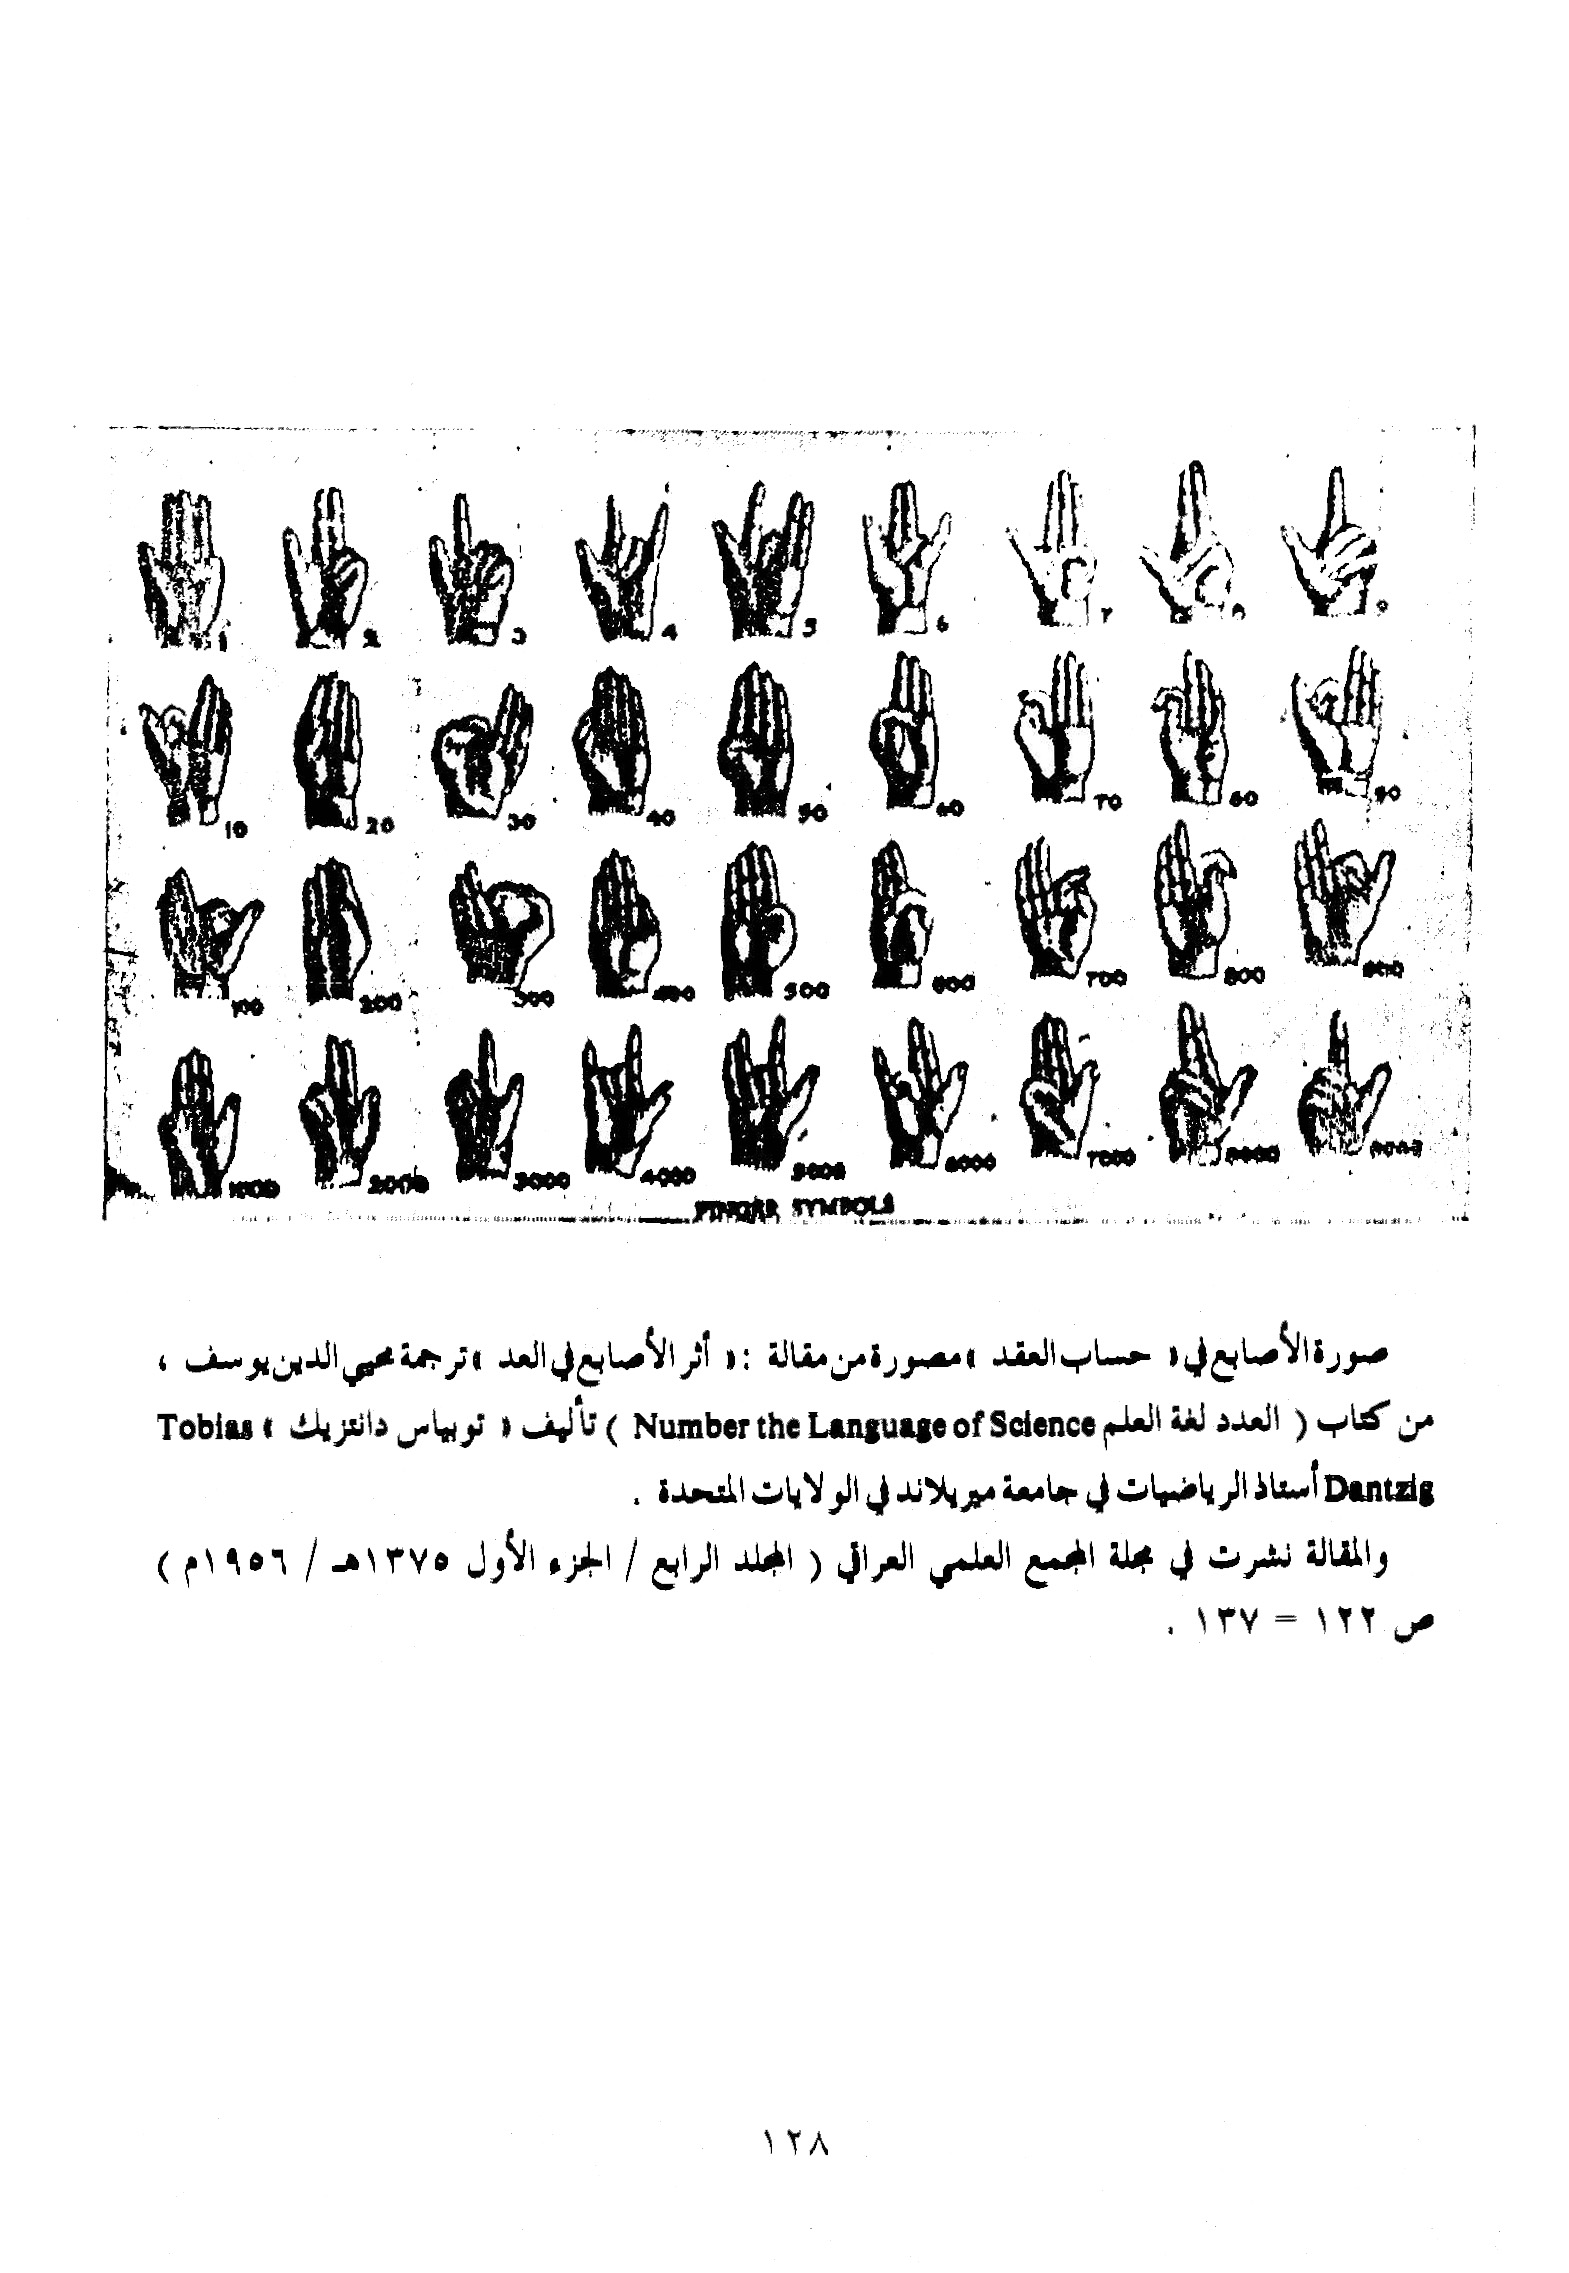 1 2 3 4 5 6 7 8 9
10 20 30 40 50 60 70 80 90
100 200 300 400 500 600 700 800 900
1000 2000 3000 4000 5000 6000 7000 8000 9000
FINGER SYMBOLS
صورة الأصابع في « حساب العقد » مصورة من مقالة : « أثر الأصابع في العد » ترجمة محيي الدين يوسف ،
من كتاب ( العدد لغة العلم Number the Language of Science ) تأليف « توبياس دانتزيك » Tobias
Dantzig أستاذ الرياضيات في جامعة ميريلاند في الولايات المتحدة .
والمقالة نشرت في مجلة المجمع العلمي العراقي ( المجلد الرابع / الجزء الأول ١٣٧٥هـ / ١٩٥٦م )
ص ١٢٢ = ١٣٧ .
١٢٨